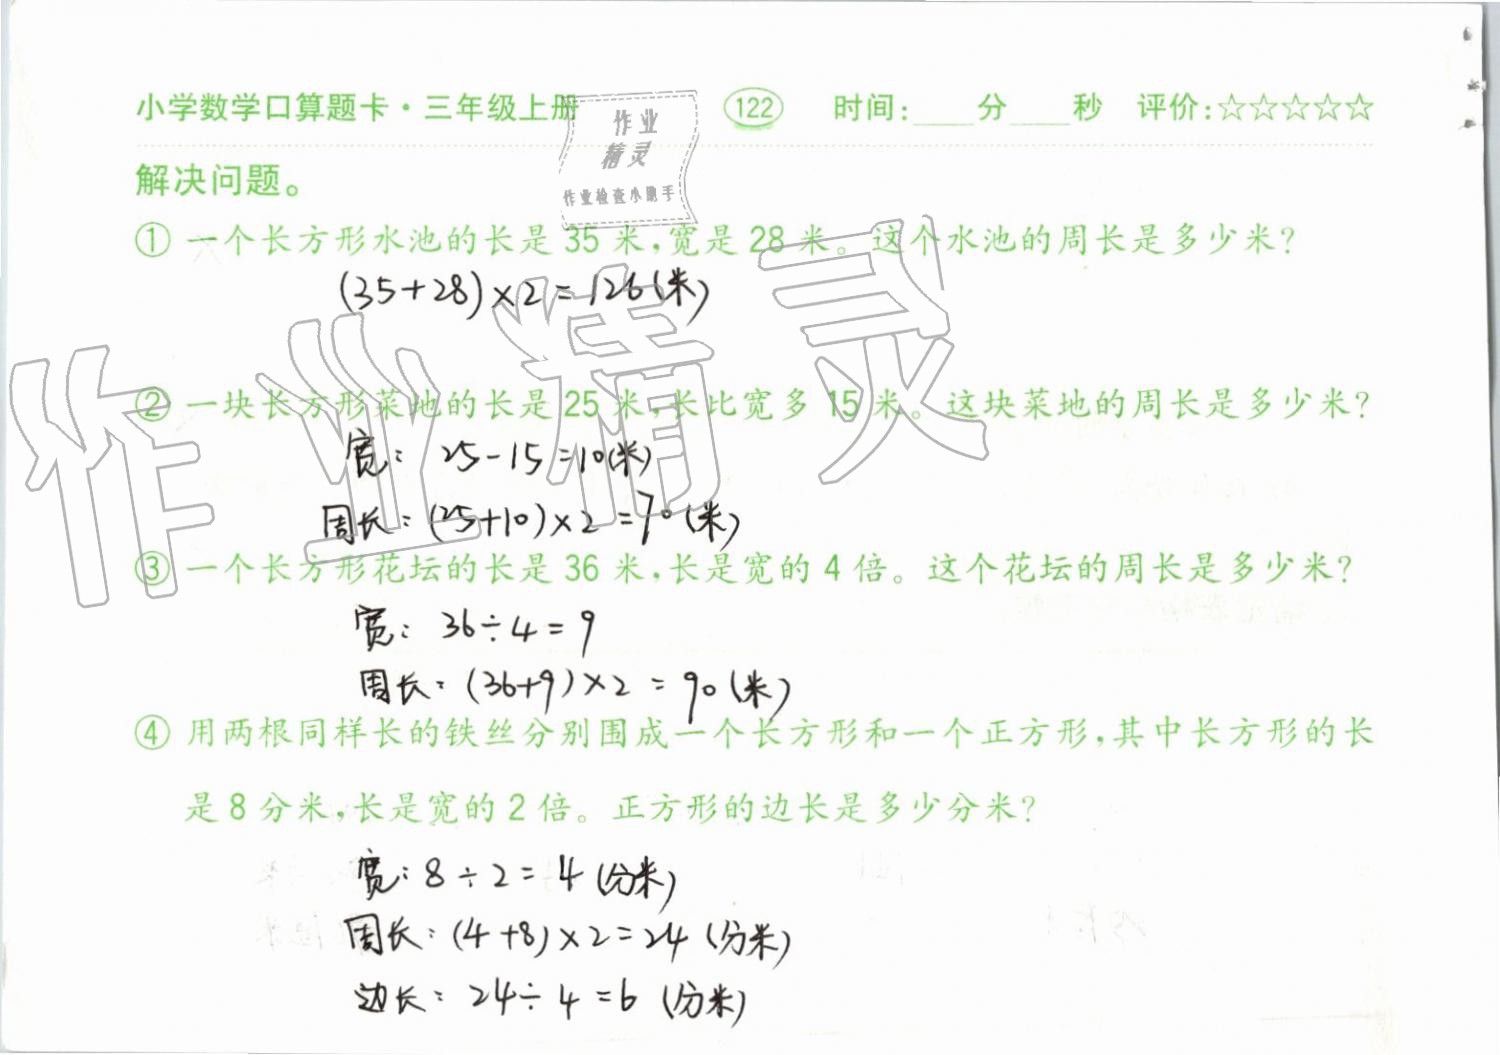 小学数学口算题卡·三年级上册 122 时间:____分____秒 评价:☆☆☆☆☆
作业
精灵
作业检查小助手
解决问题。
① 一个长方形水池的长是 35 米,宽是 28 米。这个水池的周长是多少米?
(35+28)×2=126(米)
② 一块长方形菜地的长是 25 米,长比宽多 15 米。这块菜地的周长是多少米?
宽: 25-15=10(米)
周长:(25+10)×2=70(米)
③ 一个长方形花坛的长是 36 米,长是宽的 4 倍。这个花坛的周长是多少米?
宽: 36÷4=9
周长:(36+9)×2=90(米)
④ 用两根同样长的铁丝分别围成一个长方形和一个正方形,其中长方形的长
是 8 分米,长是宽的 2 倍。正方形的边长是多少分米?
宽:8÷2=4(分米)
周长:(4+8)×2=24(分米)
边长:24÷4=6(分米)
作业精灵